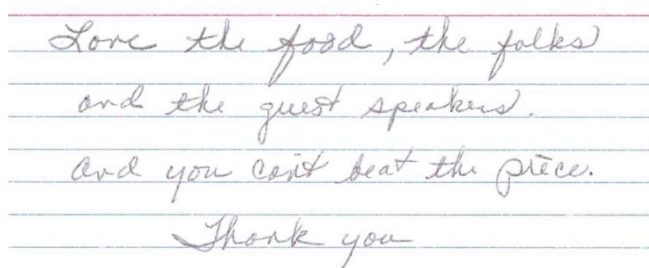 Love the food, the folks
and the guest speakers.
And you can't beat the price.
Thank you